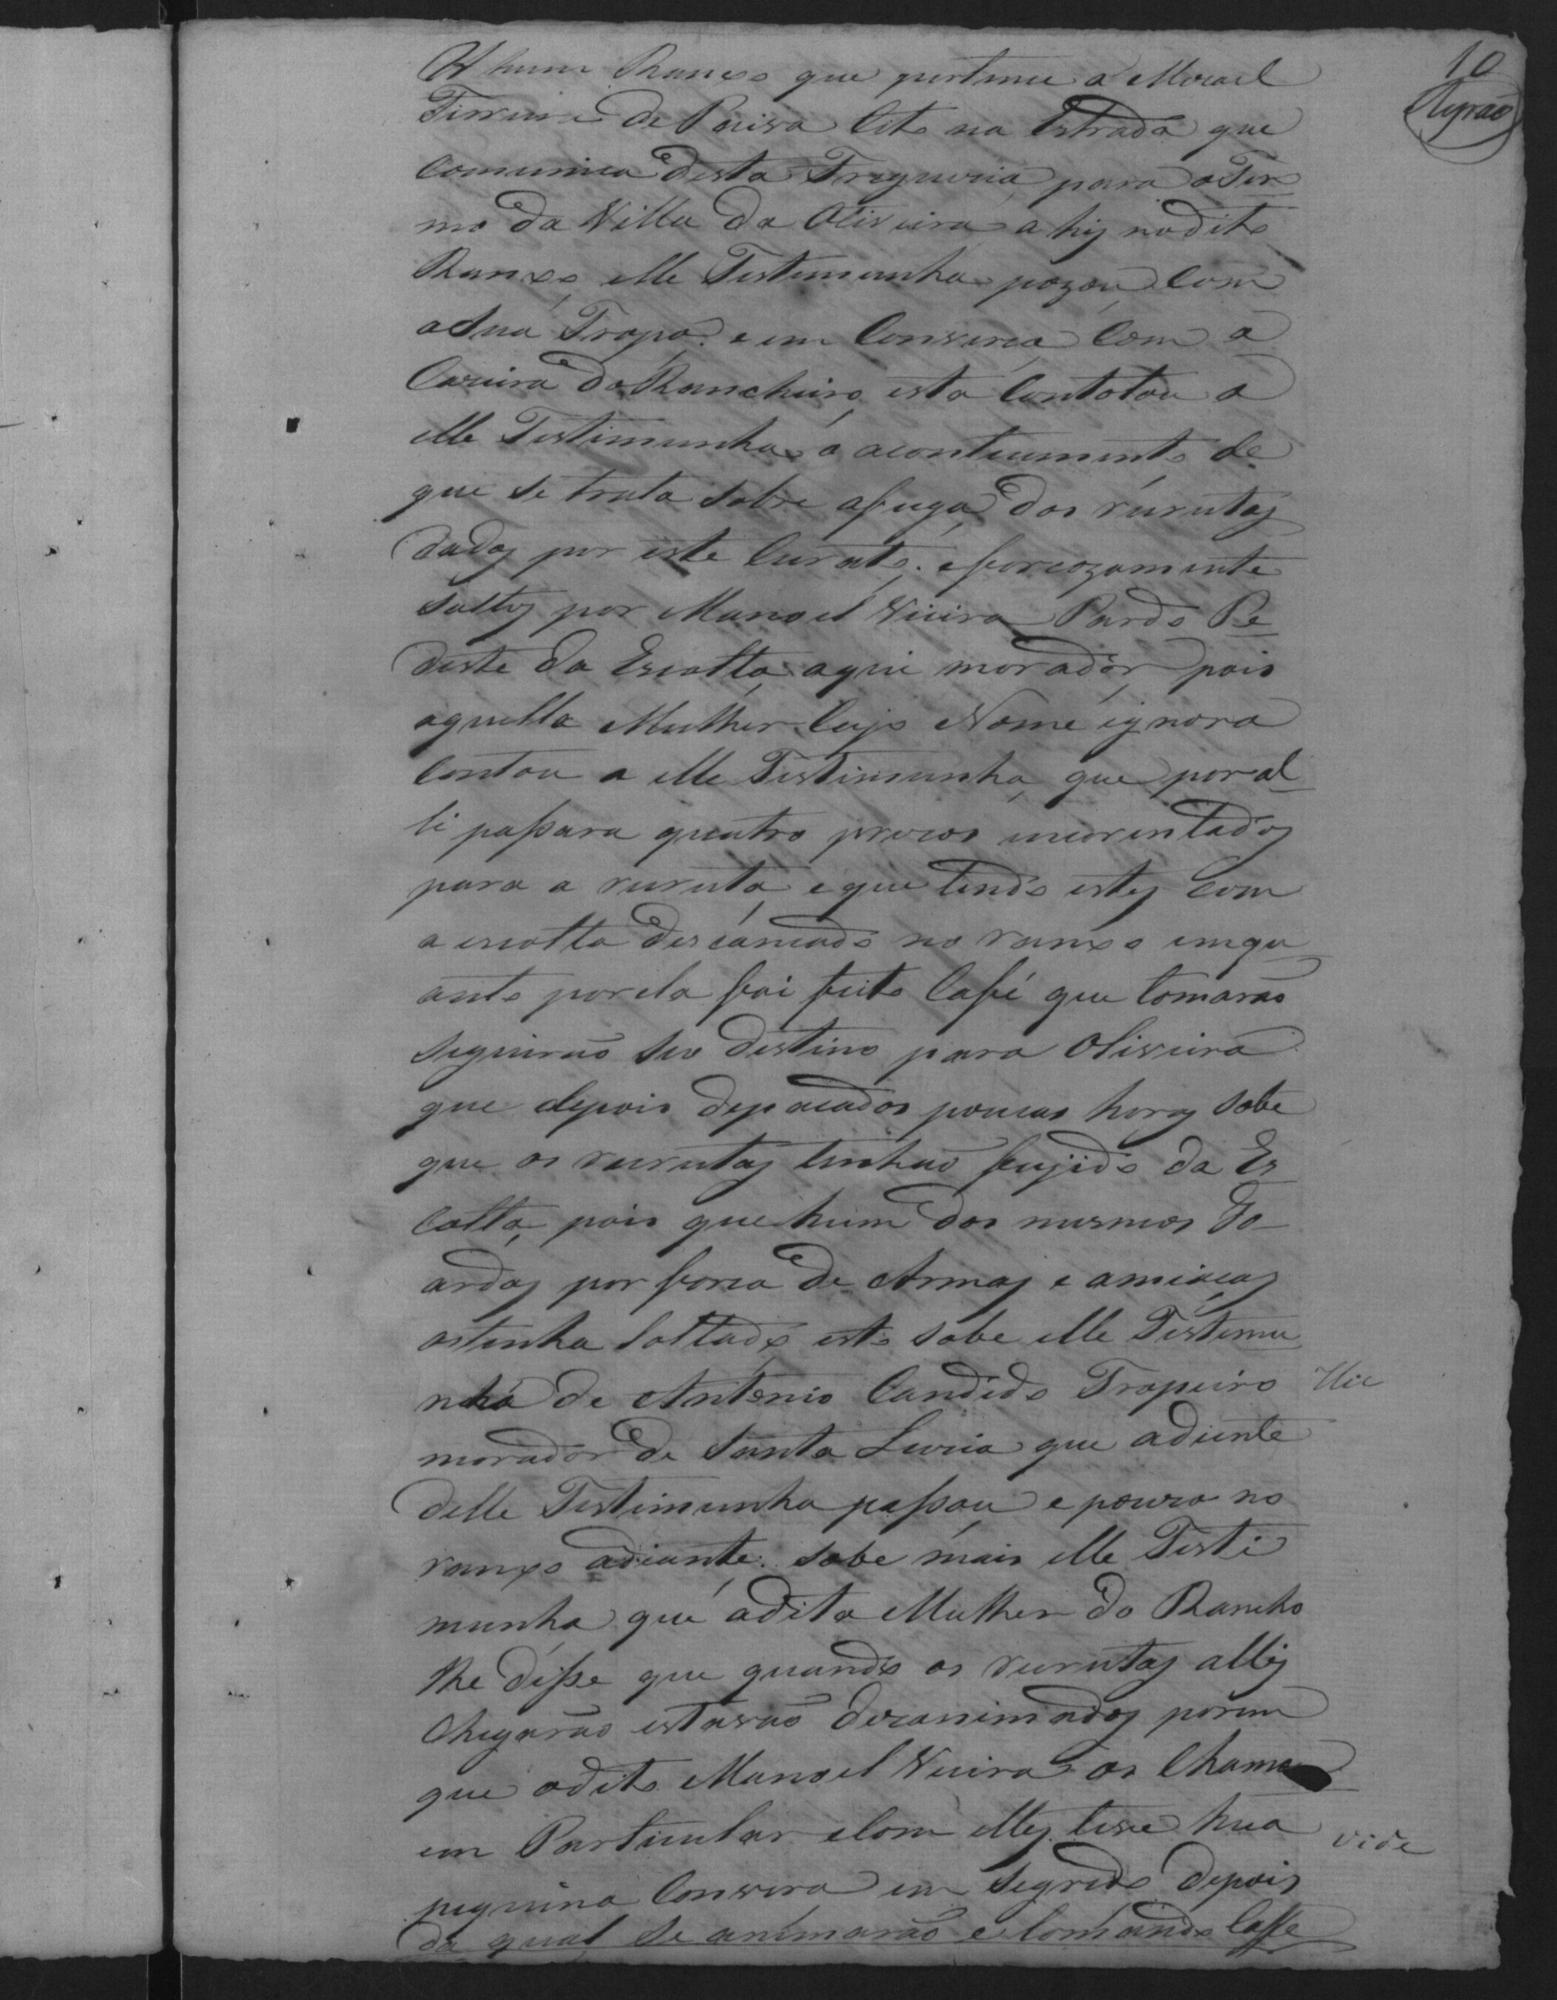 10
hum Ranxo que pertence a Manoel
Ferreira de Paiva Cito na Estrada que
Comunica desta Freguezia para o Ter
mo da Villa da Oliveira, a hij no dito
Ranxo elle Testemunha pozou Com
a Sua Tropa. e em Conversa Com a
Cazeira do Rancheiro, esta Contatou a
elle Testimunha o acontecimento de
que se trata sobre a fuga dos recrutaz
dadoz por este Curato. e forcozamente
soltoz por Manoel Vieira Pardo Pe
deste da Escolta, aqui morador pois
aquella Mulher Cujo Nome ignora
Contou a elle Testimunha, que por al
li passara quatro prezos incorentadoz
para a recruta, e que tendo estez com
a escolta descancado no ranxo emqu
anto por ela foi feito Café que tomarão
seguirão seu destino para Oliveira
que depois depacados poucas horaz sobe
que os recrutaz tinhão fujido da Es
Colta, pois que hum dos mesmos Go
ardaz por forca de Armaz e amiacaz
os tinha Soltado, esto sabe elle Testemu
nha de Antonio Candido Tropeiro
morador de Santa Luzia que adiente
delle Testimunha passou e pouzo no
ranxo adiante. sabe mais elle Testi
munha que a dita Mulher do Rancho
lhe disse que quando os recrutaz allij
Chegarão estavão decanimadoz porem
que o dito Manoel Vieira os Chamou
em Particular e Com ellez teve hua
vide
piquina Conversa em segredo depois
da qual se animarão e tomando Caffe